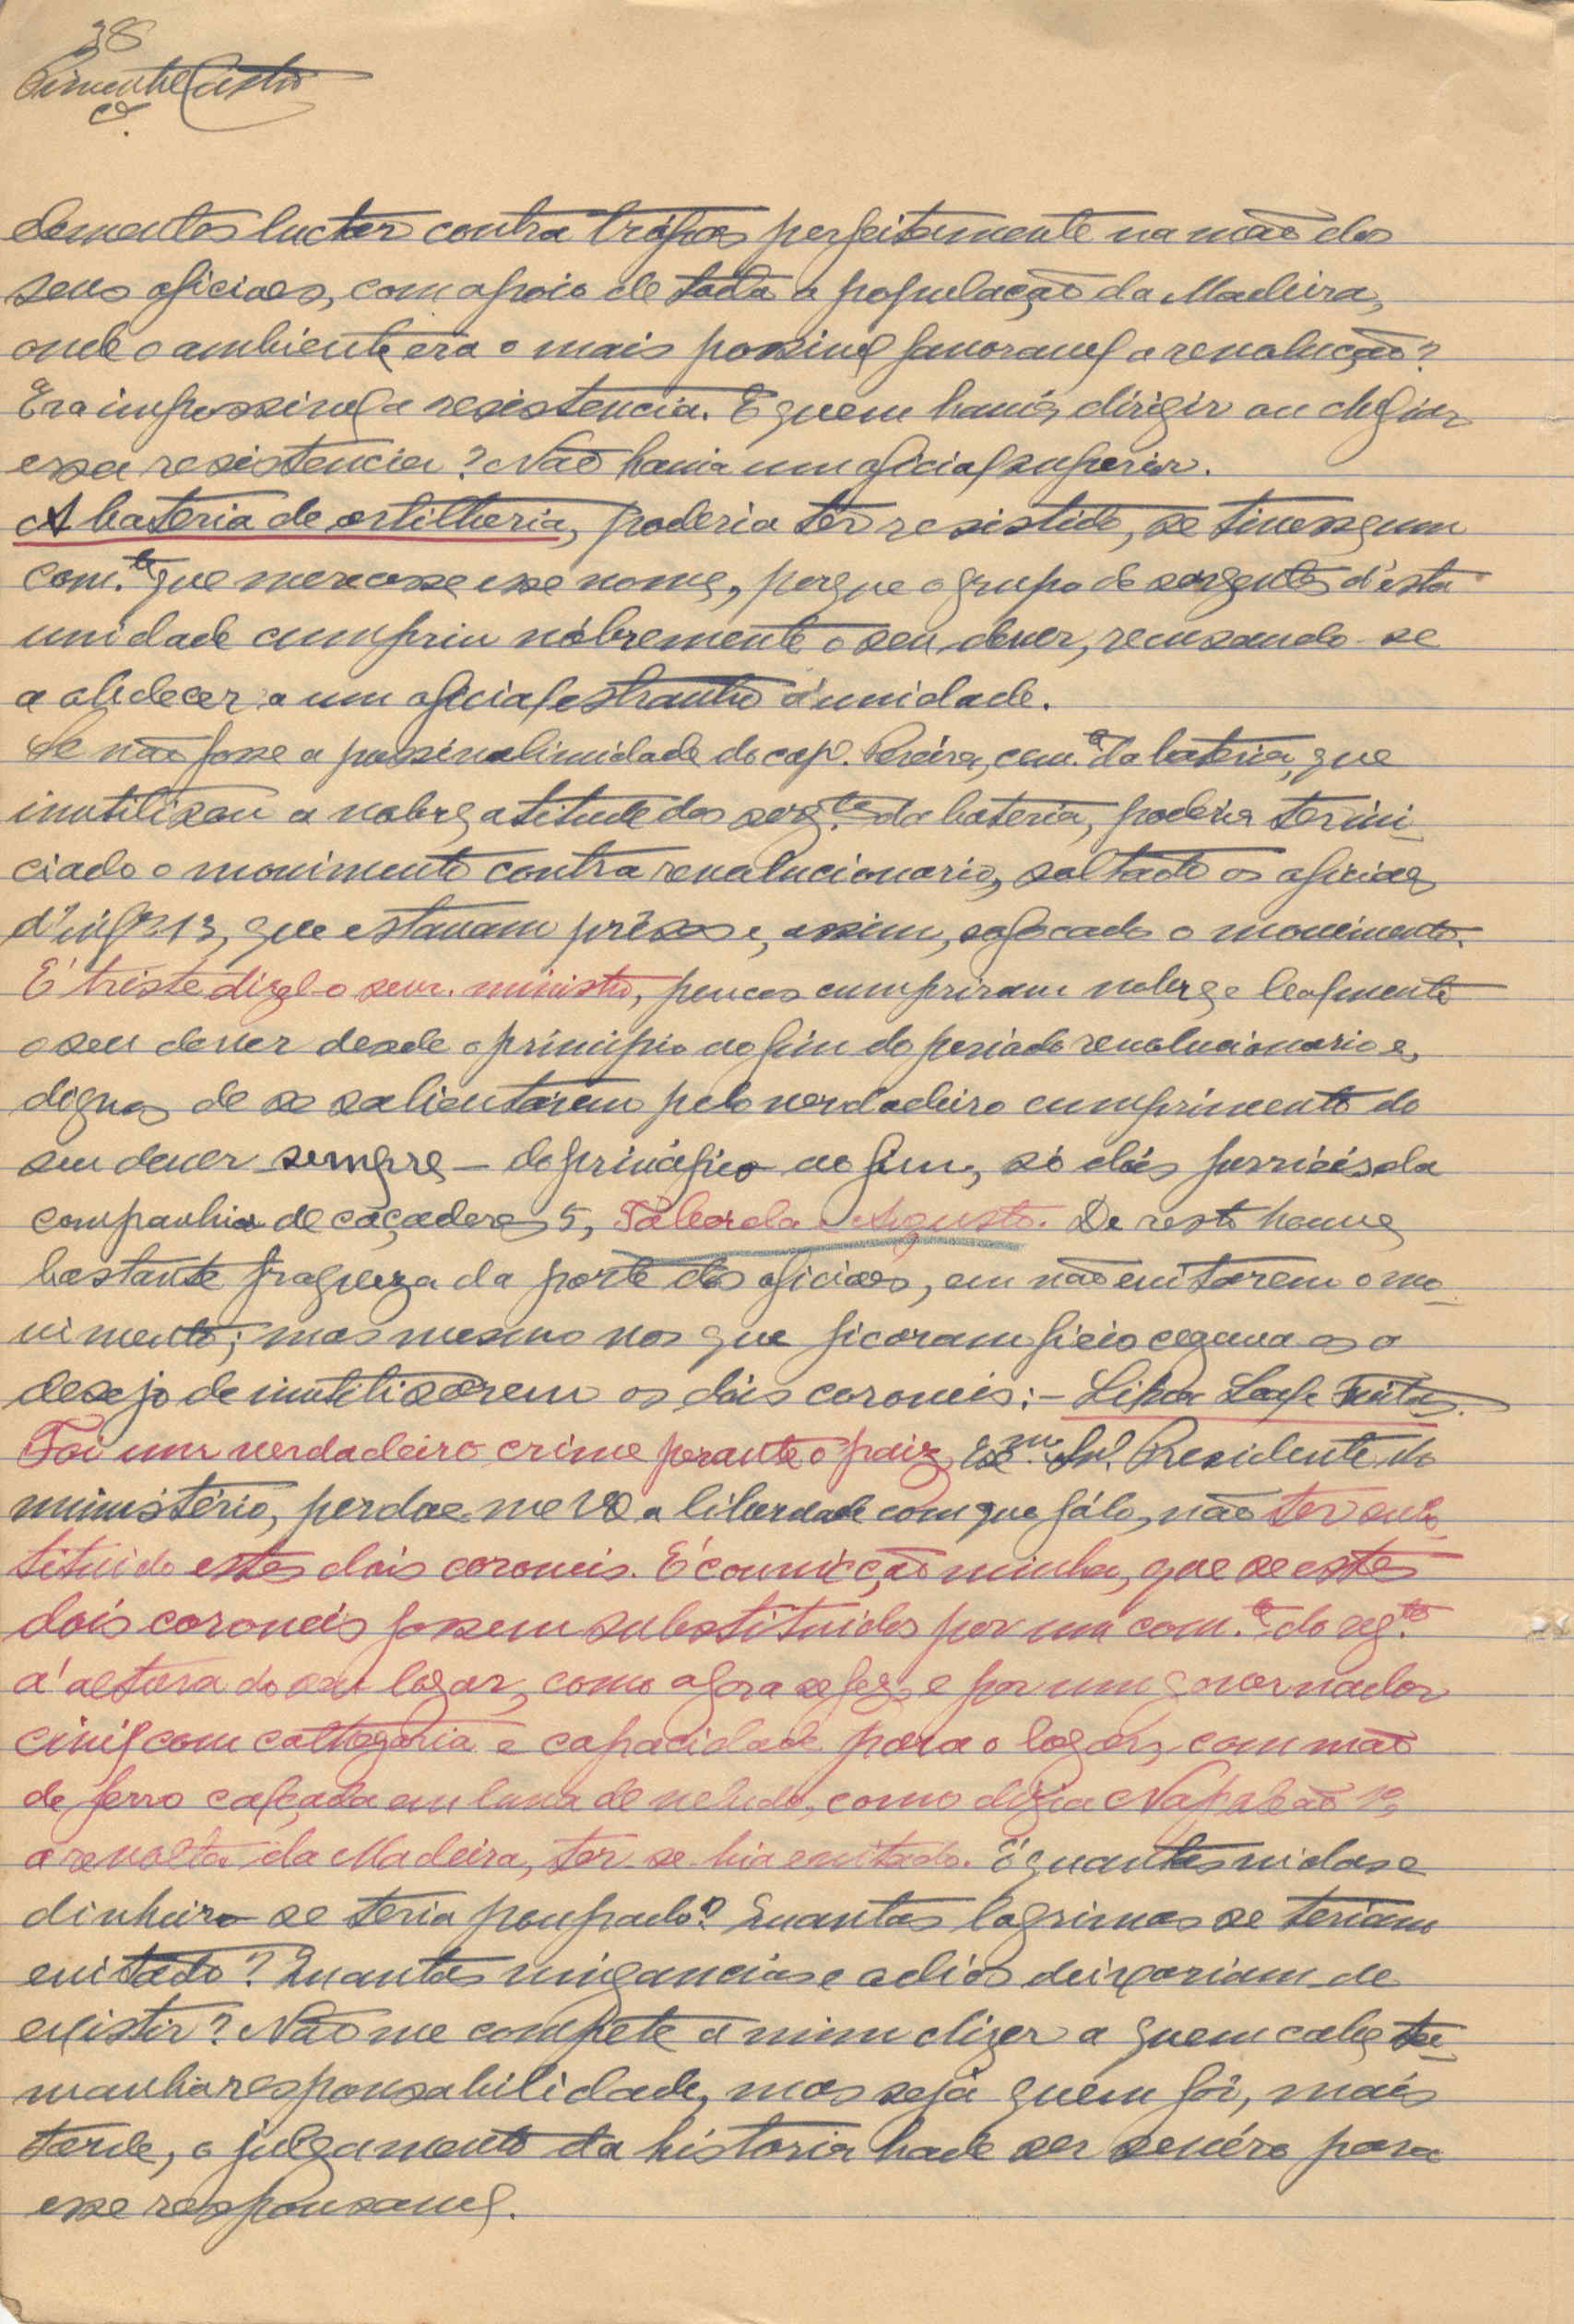 38
Pimentel Castro
elementos luctar contra trópas perfeitamente na mão dos
seus oficiaes, com apoio de toda a população da Madeira,
onde o ambiente era o mais possivel favoravel a revolução?
Era impossivel a resistencia. E quem havia dirigir ou chefiar
essa resistencia? Não havia um oficial superior.
A bateria de artilheria, poderia ter resistido, se tivesse um
com.te que merecesse esse nome, porque o grupo de sargentos d'esta
unidade cumpriu nóbremente o seu dever, recusando-se
a obedecer a um oficial estranho á unidade.
Se não fosse a pussinalimidade do cap. Pereira, com.te da bateria, que
inutilisou a nobre atitude dos sarg.tos da bateria, poderia ter ini-
ciado o movimento contra revolucionario, soltado os oficiaes
d'inf.ª 13, que estavam prêsos e, assim, sofocado o movimento.
É triste dizel-o senr. ministro, poucos cumpriram nobre e lealmente
o seu dever desde o principio ao fim do periodo revolucionario e,
dignos de se salientarem pelo verdadeiro cumprimento do
seu dever sempre — do principio ao fim, só dois
companhia de caçadores 5, Taborda e Augusto. De resto houve
bastante fraqueza da parte dos oficiaes, em não evitarem o mo-
vimento; mas mesmo nos que ficaram fieis cegava-os o
desejo de inutilisarem os dois coroneis:—
Foi um verdadeiro crime perante o paiz, Ex.mo Snr. Presidente do
ministério, perdoe-me V. Ex.ª a liberdade com que fálo, não ter subs-
tituido estes dois coroneis. É convicção minha, que se estes
dois coroneis fossem substituidos por um com.te do reg.to
á altura do seu logar, como agora se fez, e por um governador
civil com cathegoria e capacidade para o logar, com mão
de ferro calçada em luva de veludo, como dizia Napoleão 1º,
a revolta da Madeira, ter-se-hia evitado. E quantas vidas e
dinheiro se teria poupado? Quantas lagrimas se teriam
evitado? Quantas vinganças e odios deixariam de
existir? Não me compete a mim dizer a quem cabe ta-
manha responsabilidade, mas seja quem fôr, mais
tarde, o julgamento da historia hade ser sevéro para
esse responsavel.